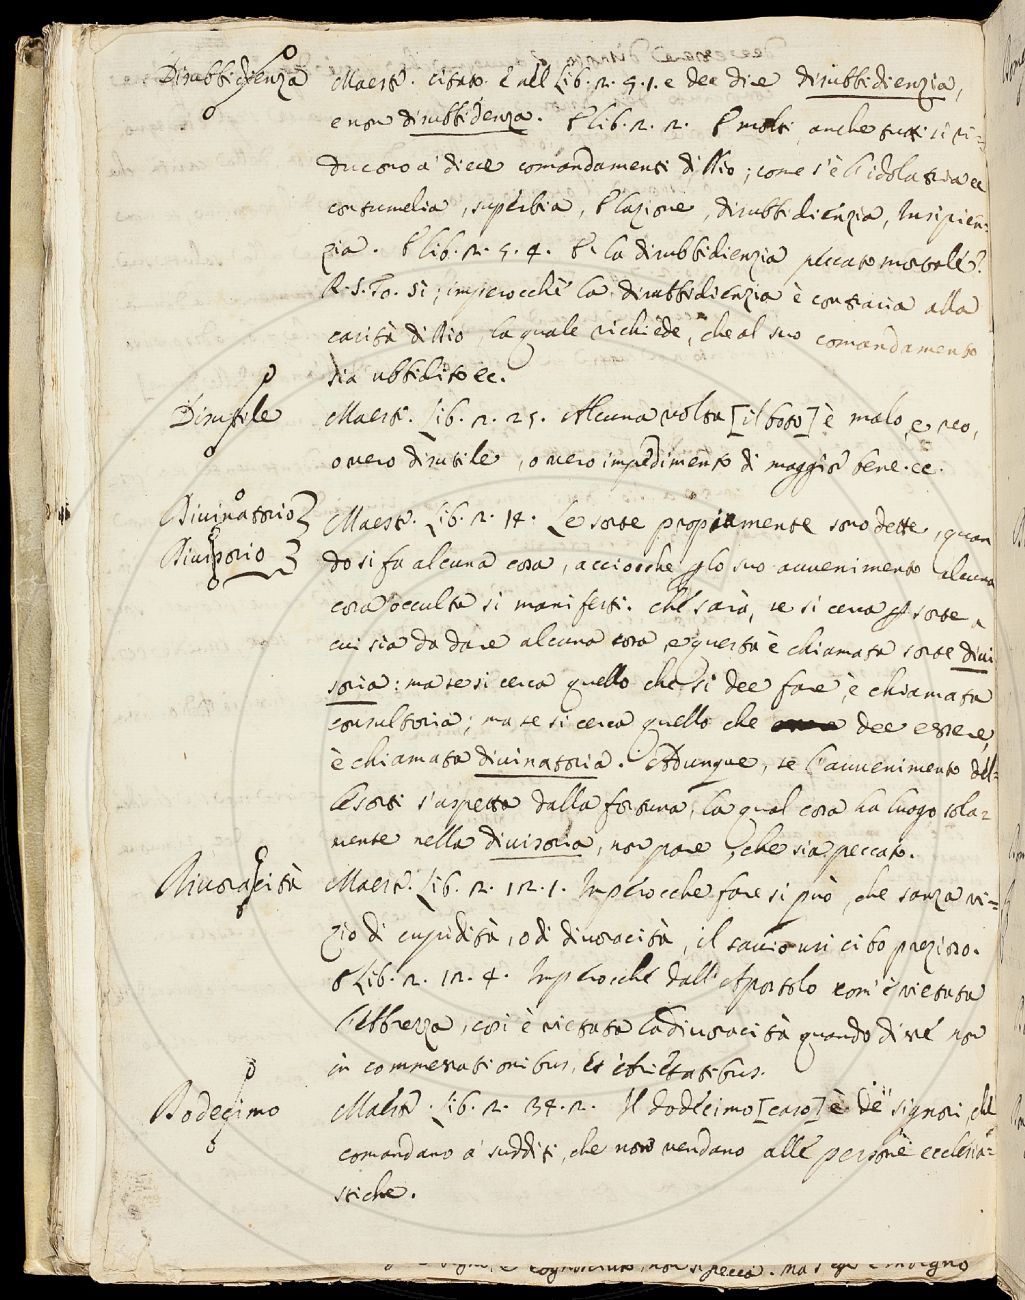 Disubbidienza Maest. citato è all Lib. 2. 9. 1. e dee dire disubbidienzia,
e non disubbidenza. E lib. 2. 2. E molti, anche tutti si ri=
ducono a' diece comandamenti di Dio; come s'è l'idolatria ec
contumelia, superbia, Elazione, disubbidienzia, Insipien=
zia. E lib. 2. 9. 4. E la disubbidienzia peccato mortale?
R. S. To. sì; imperocchè la disubbidienzia è contraria alla
carità di Dio, la quale richiede, che al suo comandamento
sia ubbidito ec.
Disutile Maest. Lib. 2. 25. Alcuna volta [il boto] è malo, e reo,
overo disutile, overo impedimento di maggior bene. ec.
Divinatorio Maest. Lib. 2. 14. Le sorte propiamente sono dette, quan
Divisorio do si fa alcuna cosa, acciocche p lo suo avvenimento alcuna
cosa occulta si manifesti. chè sarà, se si cerca p sorte a
cui sia da dare alcuna cosa, e questa è chiamata sorte divi
soria: ma se si cerca quello che si dee fare, è chiamata
consultoria; ma se si cerca quello che dee essere,
è chiamata divinatoria. Adunque, se l'avvenimento del=
le sorti s'aspetta dalla fortuna, la qual cosa ha luogo sola=
mente nella divisoria, non pare, che sia peccato.
Divoracità Maest. Lib. 2. 12. 1. Imperocche fare si può, che sanza vi=
zio di cupidità, o di divoracità, il savio usi cibo prezioso.
E Lib. 2. 12. 4. Imperocchè dall'Apostolo com' è vietata
l'ebbrezza, così è vietata la divoracità quando disse non
in commessationibus, et ebrietatibus.
Dodecimo Maest. Lib. 2. 34. 2. Il dodecimo [caso] è de' signori, che
comandano a' sudditi, che non vendano alle persone ecclesia=
stiche.